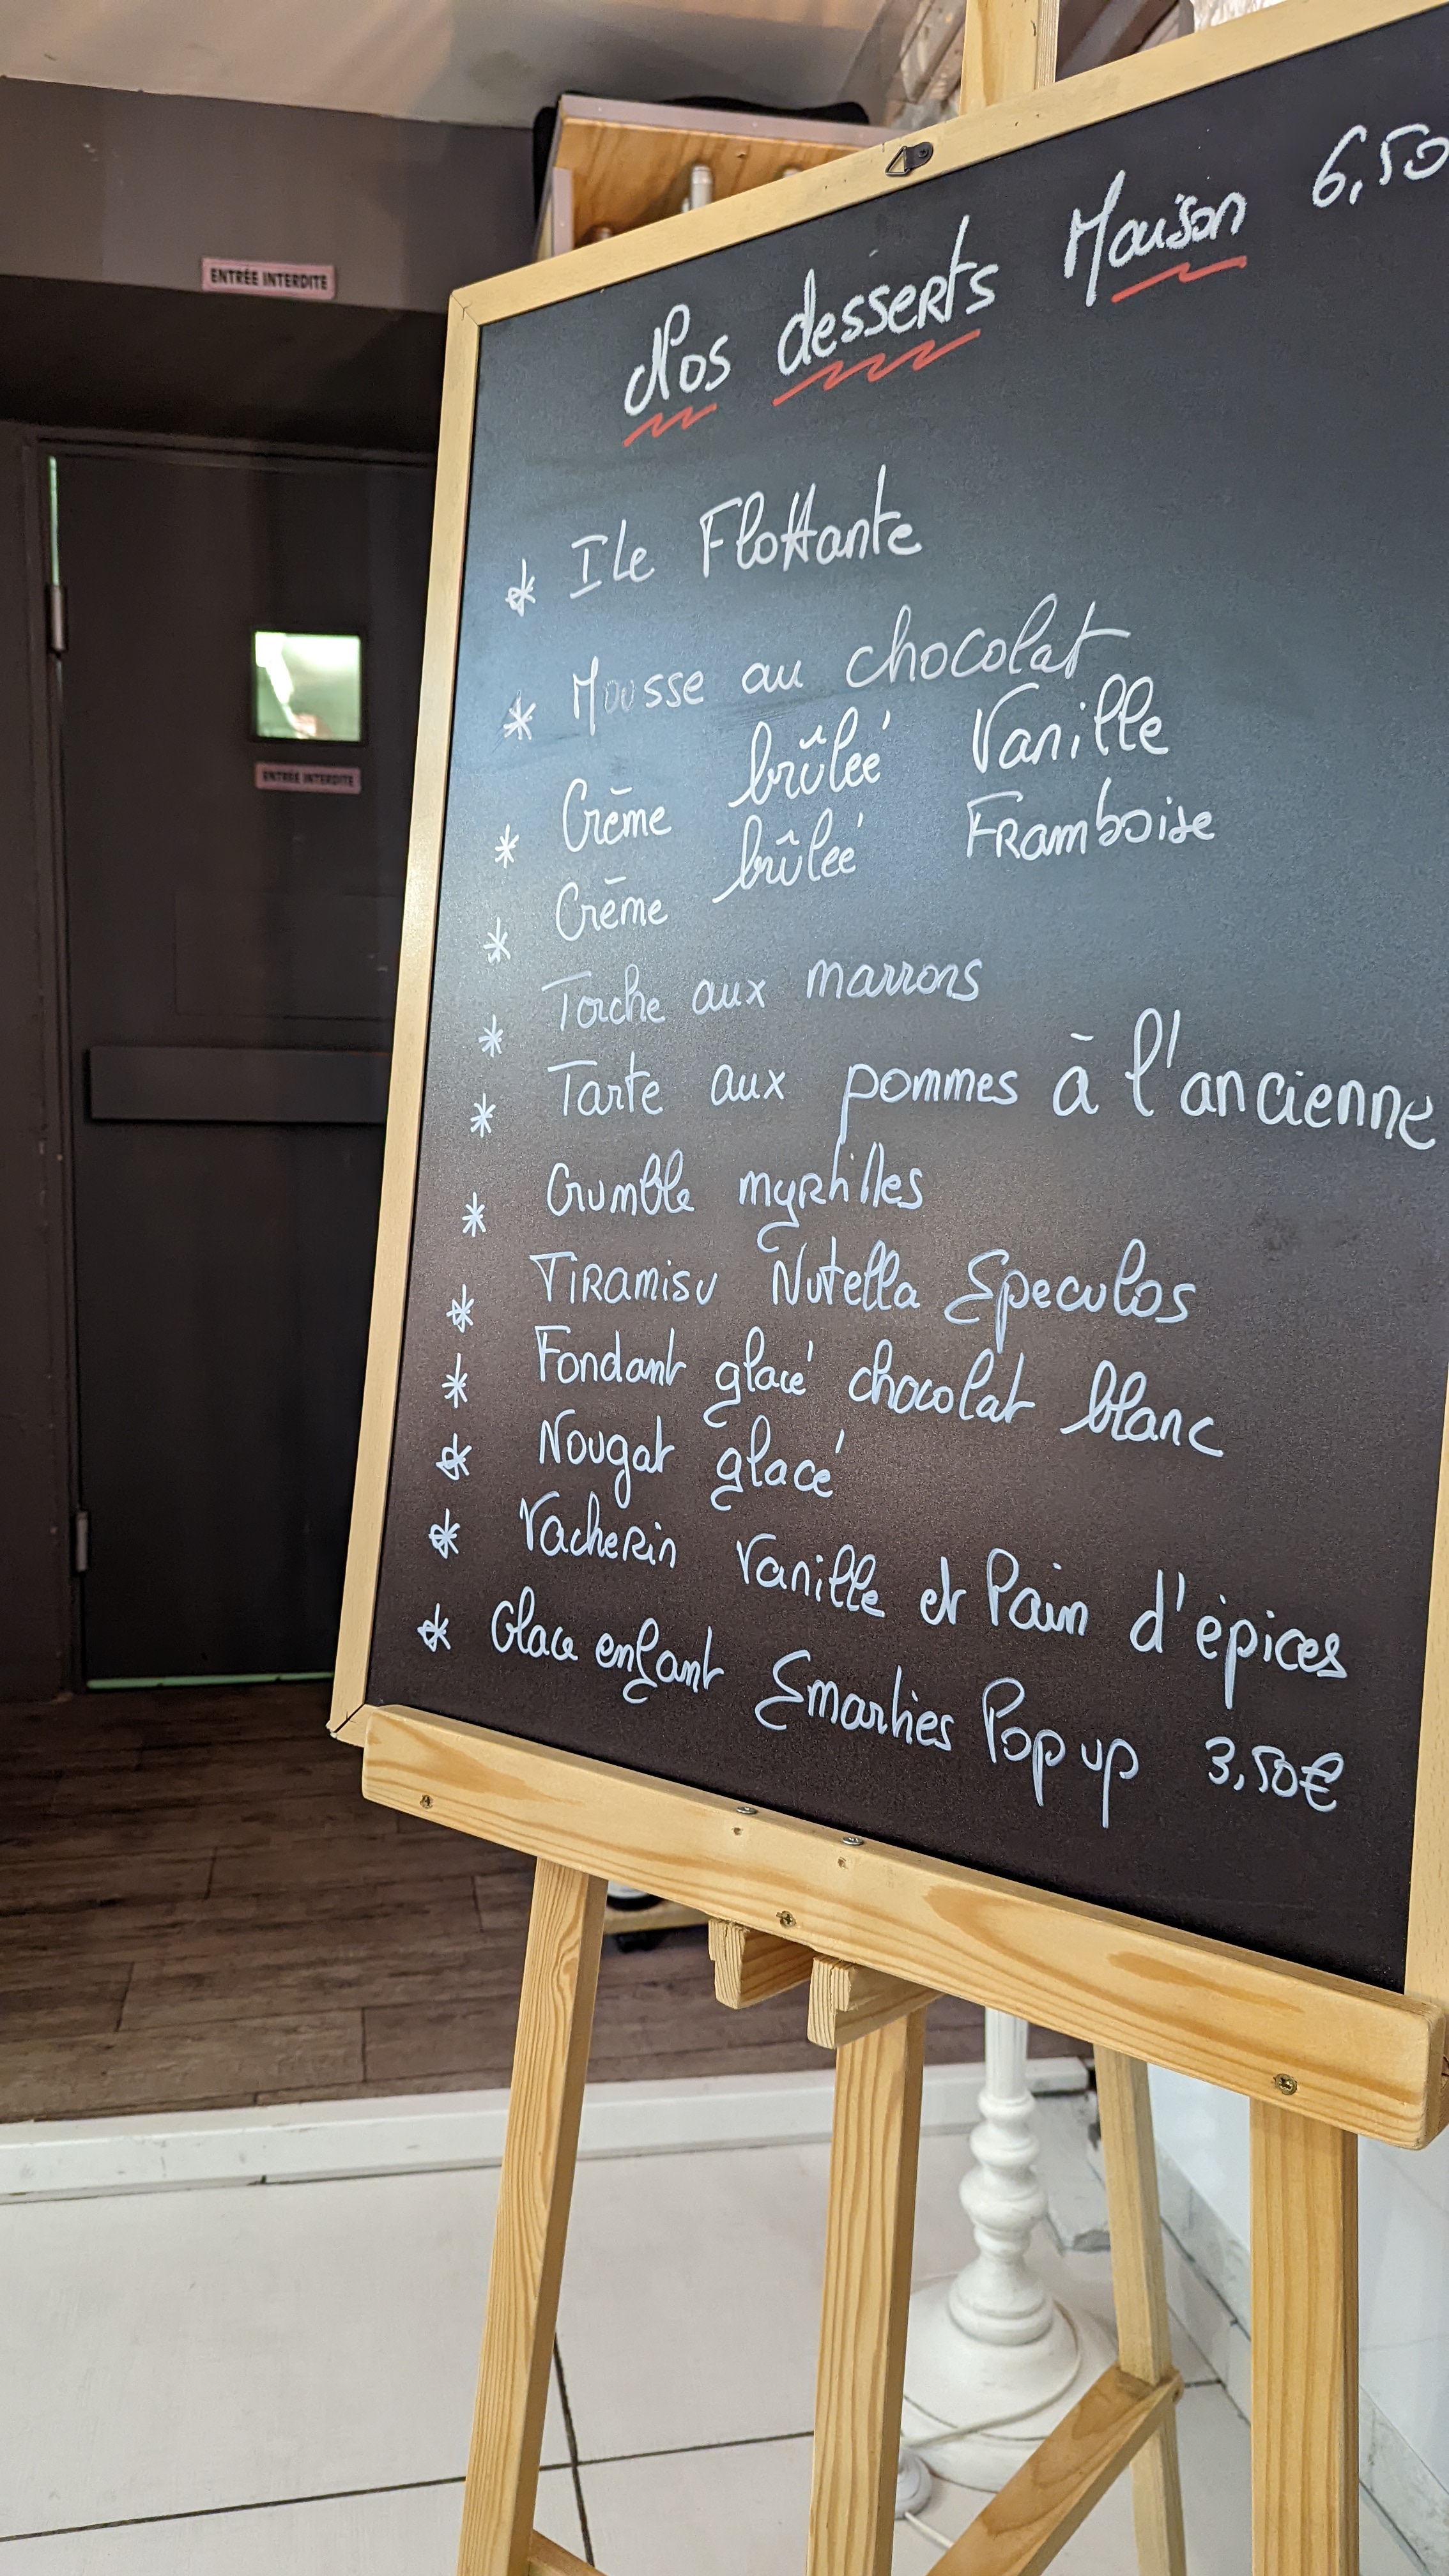 ENTRÉE INTERDITE
ENTRÉE INTERDITE
Nos desserts Maison 6,50
* Ile Flottante
* Mousse au chocolat
* Crème brûlée Vanille
* Crème brûlée Framboise
* Torche aux marrons
* Tarte aux pommes à l'ancienne
* Crumble myrtilles
* Tiramisu Nutella Speculos
* Fondant glacé chocolat blanc
* Nougat glacé
* Vacherin Vanille et Pain d'épices
* Glace enfant Smarties Pop up 3,50€